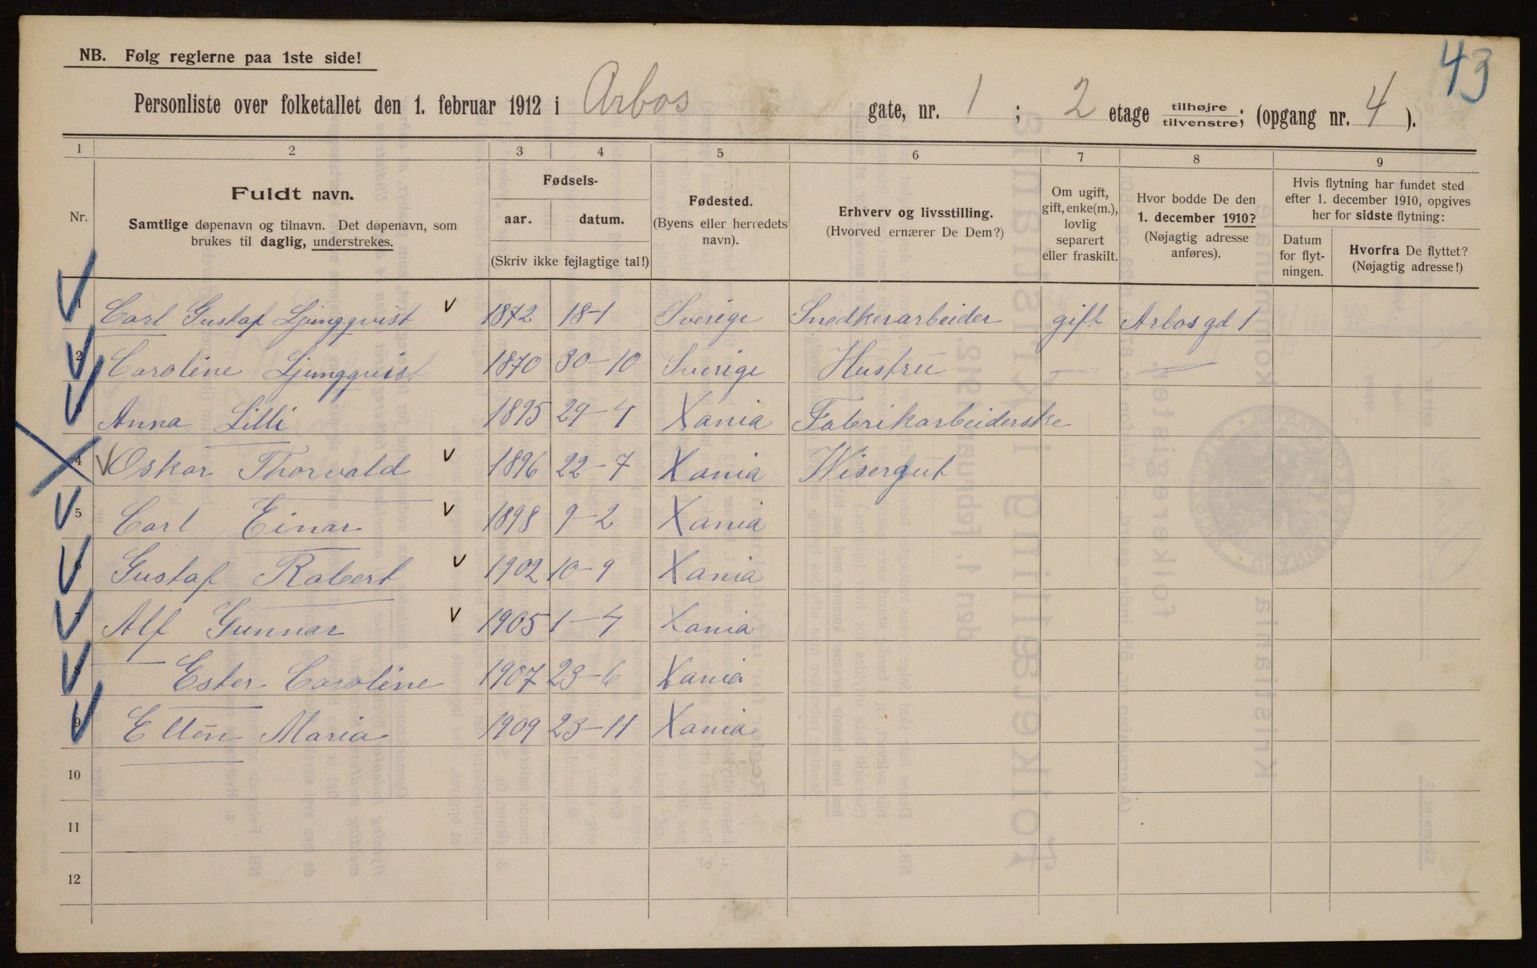 43
NB. Følg reglerne paa 1ste side!
Personliste over folketallet den 1. februar 1912 i Arbos gate, nr. 1; 2 etage tilhøjre tilvenstre; (opgang nr. 4).
1 2 3 4 5 6 7 8 9
Nr.
Fuldt navn.
Samtlige døpenavn og tilnavn. Det døpenavn, som
brukes til daglig, understrekes.
Fødsels-
aar. datum.
(Skriv ikke fejlagtige tal!)
Fødested.
(Byens eller herredets
navn).
Erhverv og livsstilling.
(Hvorved ernærer De Dem?)
Om ugift,
gift, enke(m.),
lovlig
separert
eller fraskilt.
Hvor bodde De den
1. december 1910?
(Nøjagtig adresse
anføres).
Hvis flytning har fundet sted
efter 1. december 1910, opgives
her for sidste flytning:
Datum
for flyt-
ningen.
Hvorfra De flyttet?
(Nøjagtig adresse!)
1 Carl Gustaf Ljungqvist v 1872 18-1 Sverige Snedkerarbeider gift Arbosgd 1
2 Caroline Ljungqvist 1870 30-10 Sverige Hustru — —
Anna Lilli 1895 29-4 Xania Fabrikarbeiderske
4 Oskar Thorvald v 1896 22-7 Xania Visergut
5 Carl Einar v 1898 9-2 Xania
6 Gustaf Robert v 1902 10-9 Xania
7 Alf Gunnar v 1905 1-4 Xania
8 Ester Caroline 1907 23-6 Xania
9 Ellen Maria 1909 23-11 Xania
10
11
12